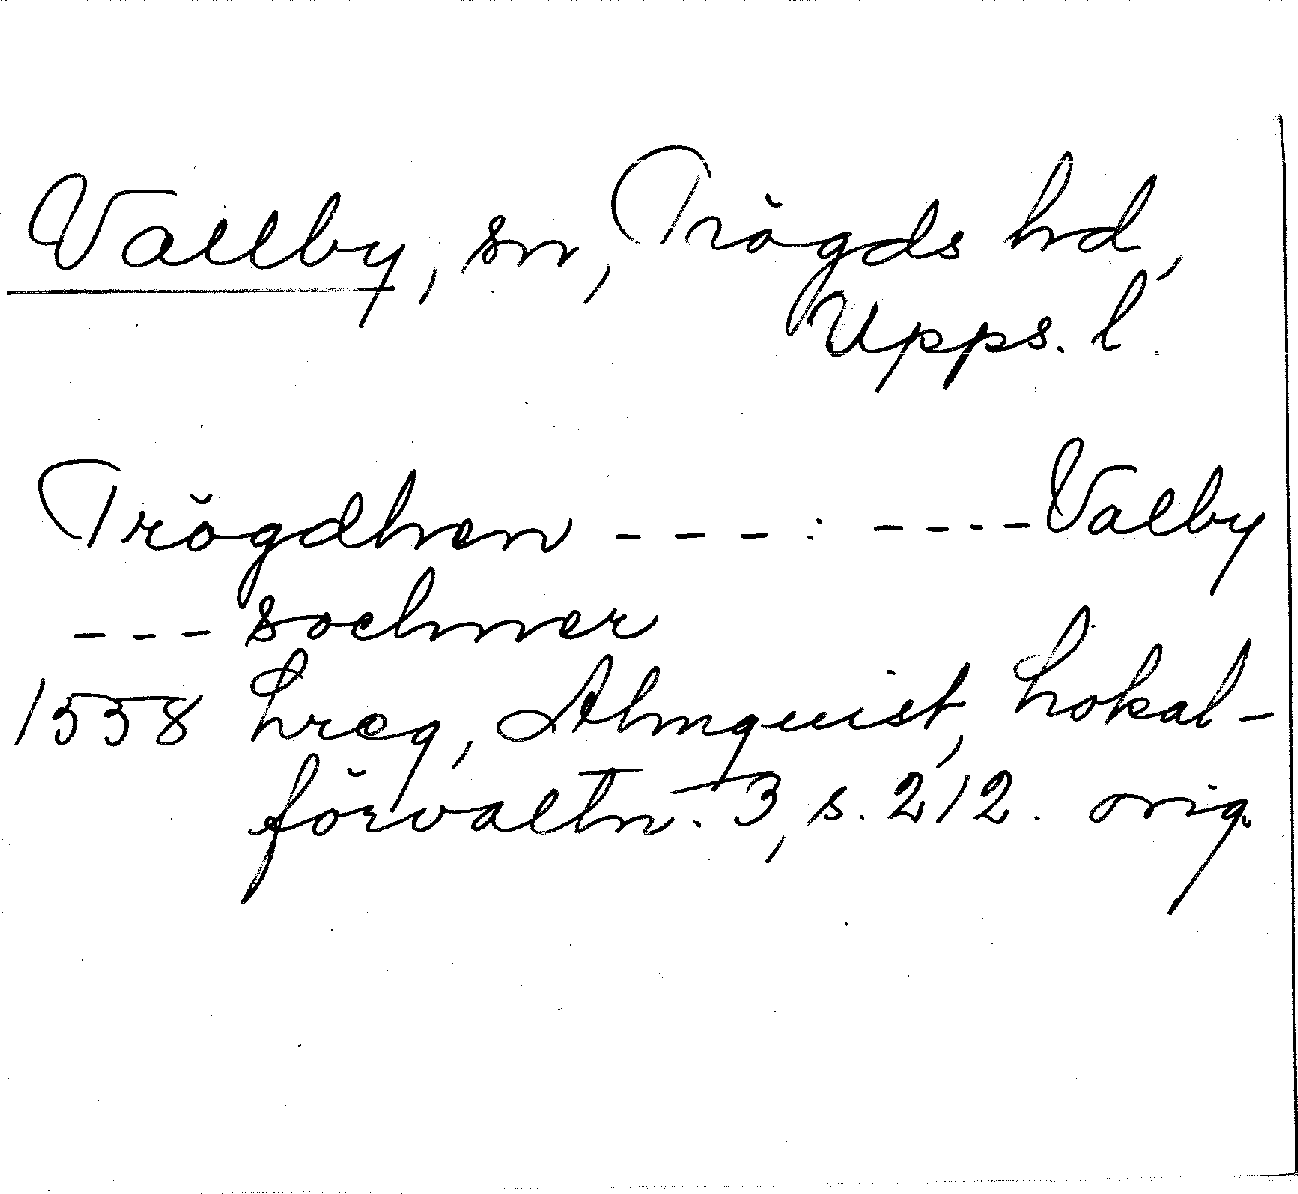 Vallby, sn, Trögds hd,
Upps. l.
Trögdhen - - - : - - - - Valby
- - - sochner
1558 Lreg, Almquist, Lokal-
förvaltn. 3, s. 212. orig.